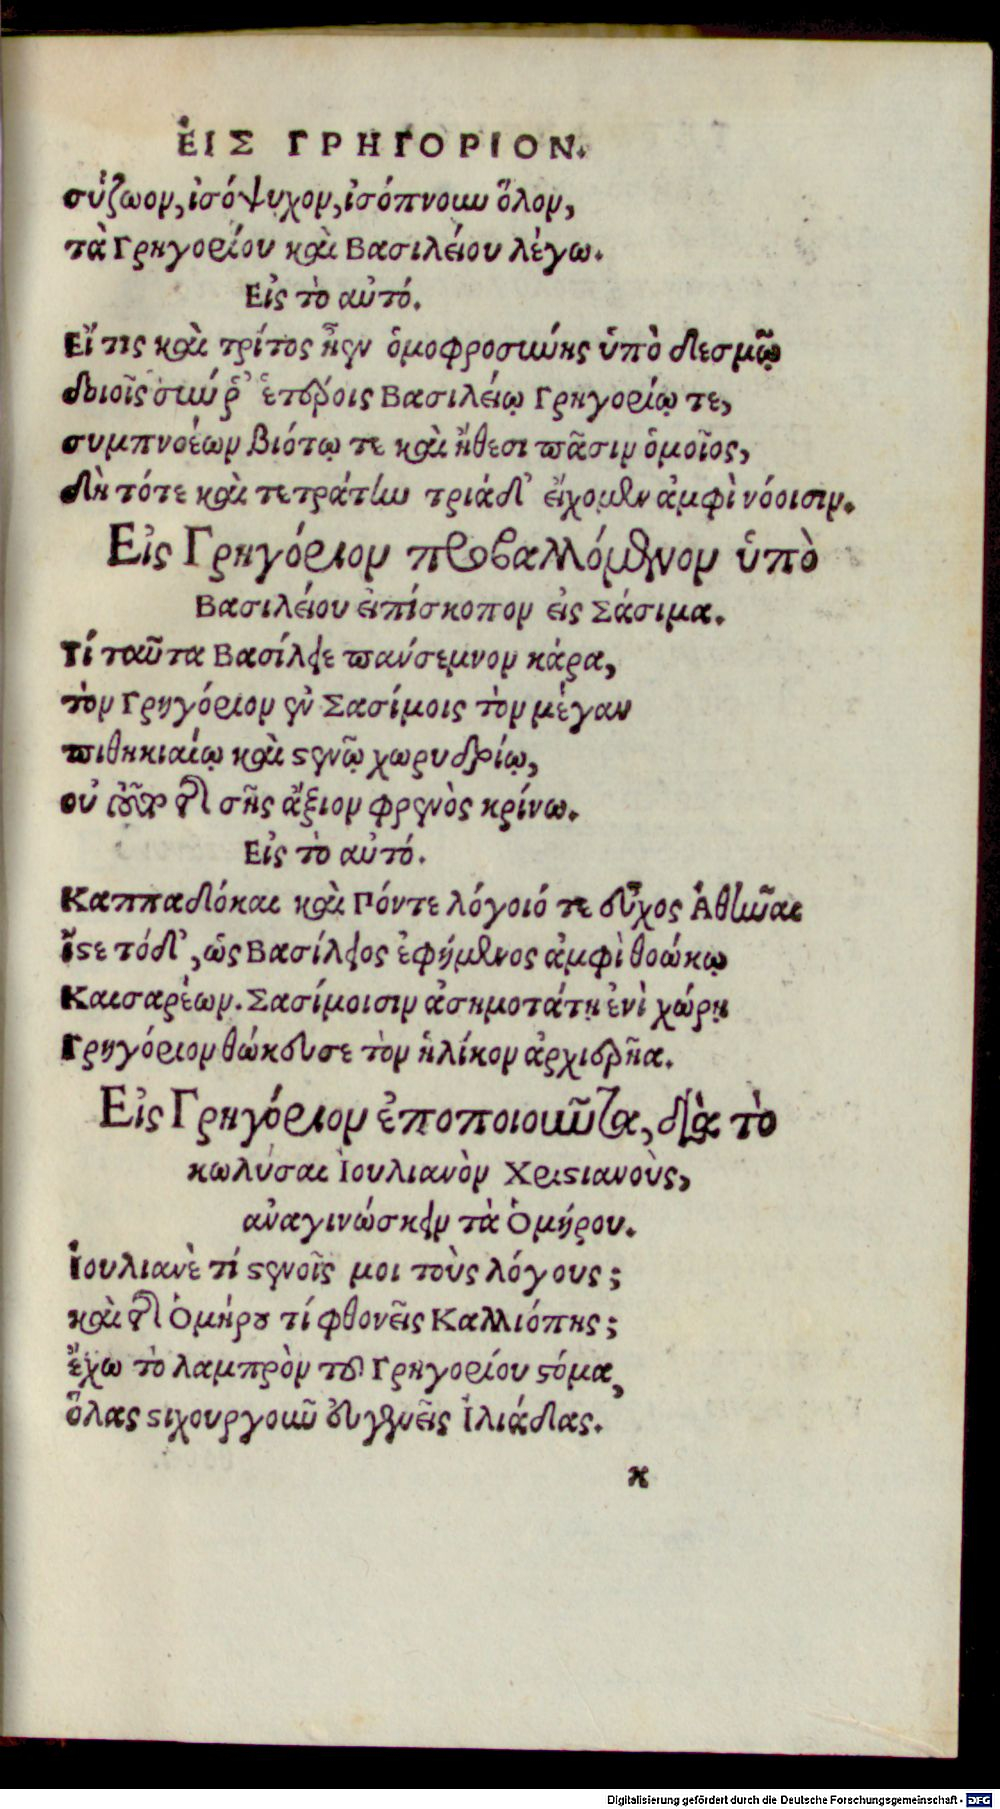 ΕἸΣ ΓΡΗΓΟΡΙΟΝ.
σύζωον, ἰσόψυχον, ἰσόπνουν ὅλον,
τὰ Γρηγορίου καὶ Βασιλείου λέγω.
Εἰς τὸ αὐτό.
Εἴ τις καὶ τρίτος ἦεν ὁμοφροσύνης ὑπὸ δεσμῷ
δοιοῖς σύν ῥ' ἑτάροις Βασιλείῳ Γρηγορίῳ τε,
συμπνοέων βιότῳ τε καὶ ἤθεσι πᾶσιν ὁμοῖος,
δὴ τότε καὶ τετράτην τριάδ' εἴχομεν ἀμφὶ νόοισιν.
Εἰς Γρηγόριον προβαλλόμενον ὑπὸ
Βασιλείου ἐπίσκοπον εἰς Σάσιμα.
Τί ταῦτα Βασίλειε πανσεμνον κάρα,
τὸν Γρηγόριον ἐν Σασίμοις τὸν μέγαν
πιθηκιαίῳ καὶ στενῷ χωρυδρίῳ,
οὐ γὰρ τῆς σῆς ἄξιον φρενὸς κρίνω.
Εἰς τὸ αὐτό.
Καππαδόκαι καὶ Πόντε λόγοιό τε εὖχος Ἀθῆναι
ἴστε τόδ', ὡς Βασίλειος ἐφήμενος ἀμφὶ θοώκῳ
Καισαρέων. Σασίμοισιν ἀσημοτάτῃ ἐνὶ χώρῃ
Γρηγόριον θώκευσε τὸν ἡλίκον ἀρχιερῆα.
Εἰς Γρηγόριον ἐποποιοῦντα, διὰ τὸ
κωλύσαι Ἰουλιανὸν Χριστιανοὺς,
ἀναγινώσκειν τὰ Ὁμήρου.
Ἰουλιανὲ τί στενοῖς μοι τοὺς λόγους;
καὶ τῆς Ὁμήρου τί φθονεῖς Καλλιόπης;
ἔχω τὸ λαμπρὸν τοῦ Γρηγορίου στόμα,
ὅλας στιχουργοῦν εὐγενεῖς Ἰλιάδας.
κ
Digitalisierung gefördert durch die Deutsche Forschungsgemeinschaft - DFG